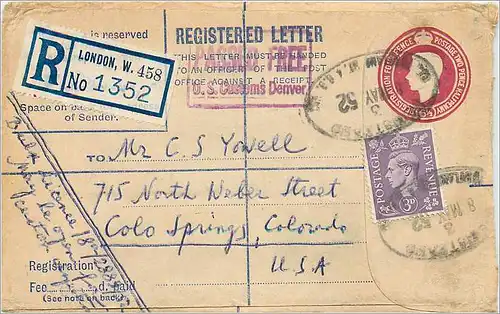 is reserved
REGISTERED LETTER
THIS LETTER MUST BE HANDED
TO AN OFFICER OF THE POST
OFFICE AGAINST A RECEIPT
PASSED FREE
U. S. Customs Denver.
R
LONDON, W. 458
No 1352
REGISTRATION FOUR PENCE POSTAGE TWO PENCE HALFPENNY
Space on back
of Sender.
TO Mr C S Yowell
715 North Weber Street
Colo Springs, Colorado
U.S.A
POSTAGE REVENUE
3D
MAY
52
8 MAY 52
Bulk licence
May be opened
Registration
Fee d. paid
(See note on back)